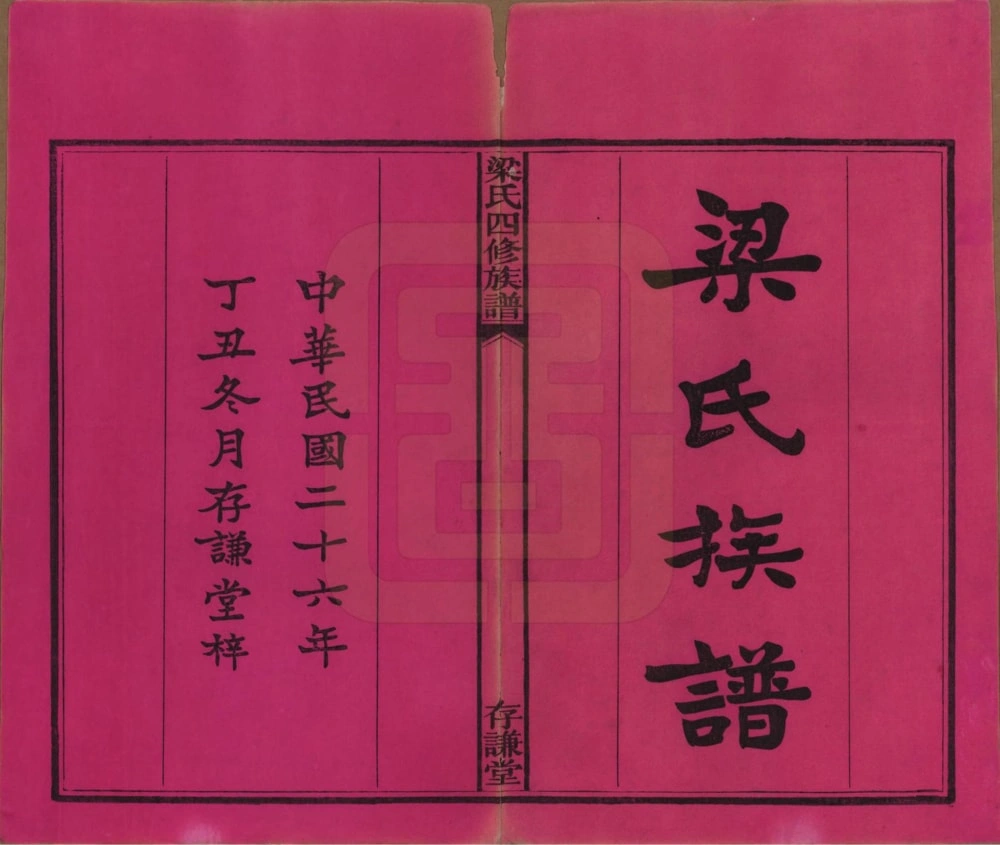 梁氏族譜
梁氏四修族譜
存謙堂
中華民國二十六年
丁丑冬月存謙堂梓